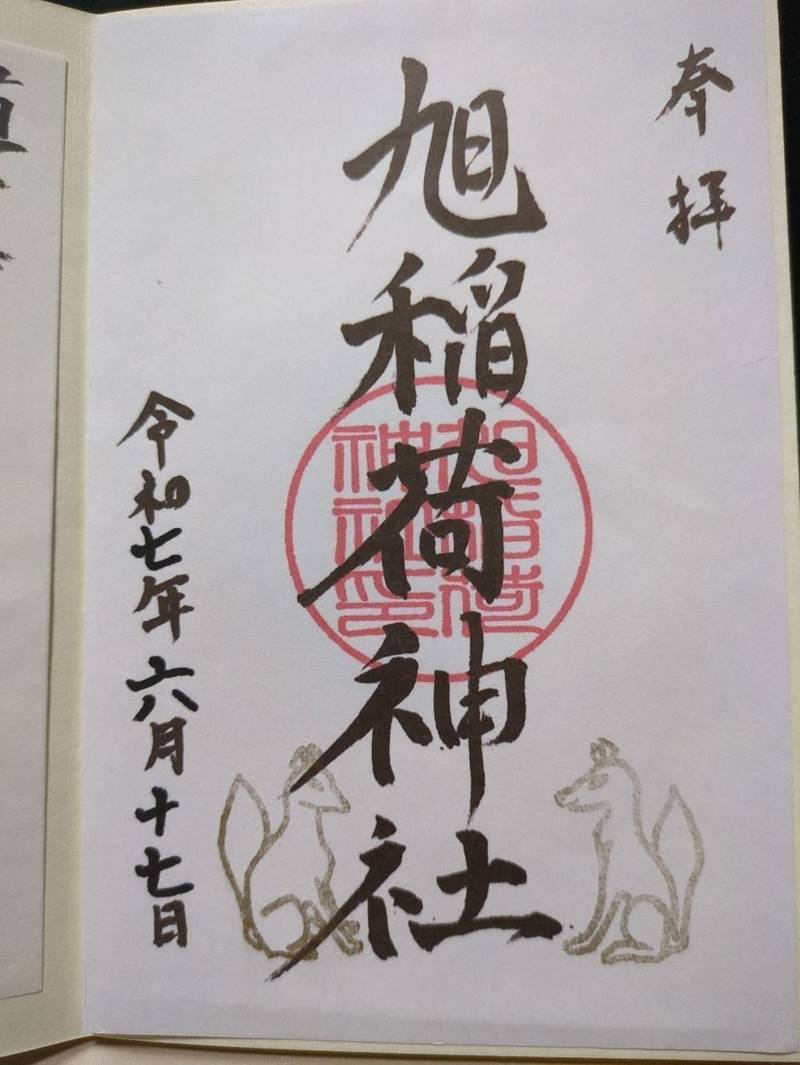 奉拝
旭稲荷神社
旭稲荷
神社印
令和七年六月十七日